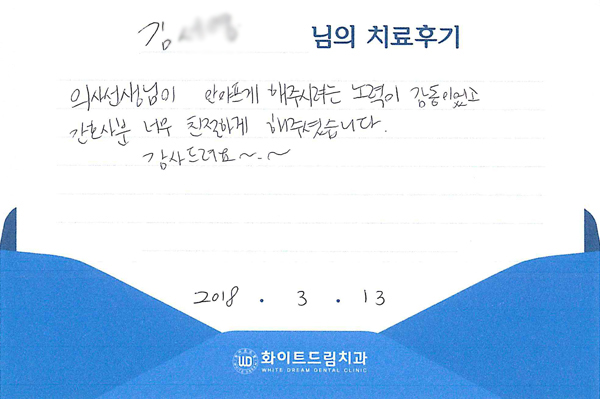 김 님의 치료후기
의사선생님이 안아프게 해주시려는 노력이 감동이었고
간호사분 너무 친절하게 해주셨습니다.
감사드려요~.~
2018 . 3 . 13
WD 화이트드림치과
WHITE DREAM DENTAL CLINIC